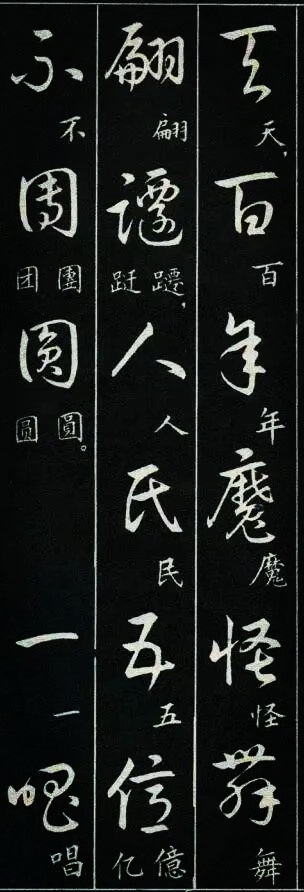 天百年魔怪舞
天，百年魔怪舞
翩躚人民五億
翩躚跹，人民五億亿
不團圓一唱
不團团圓圆。一唱